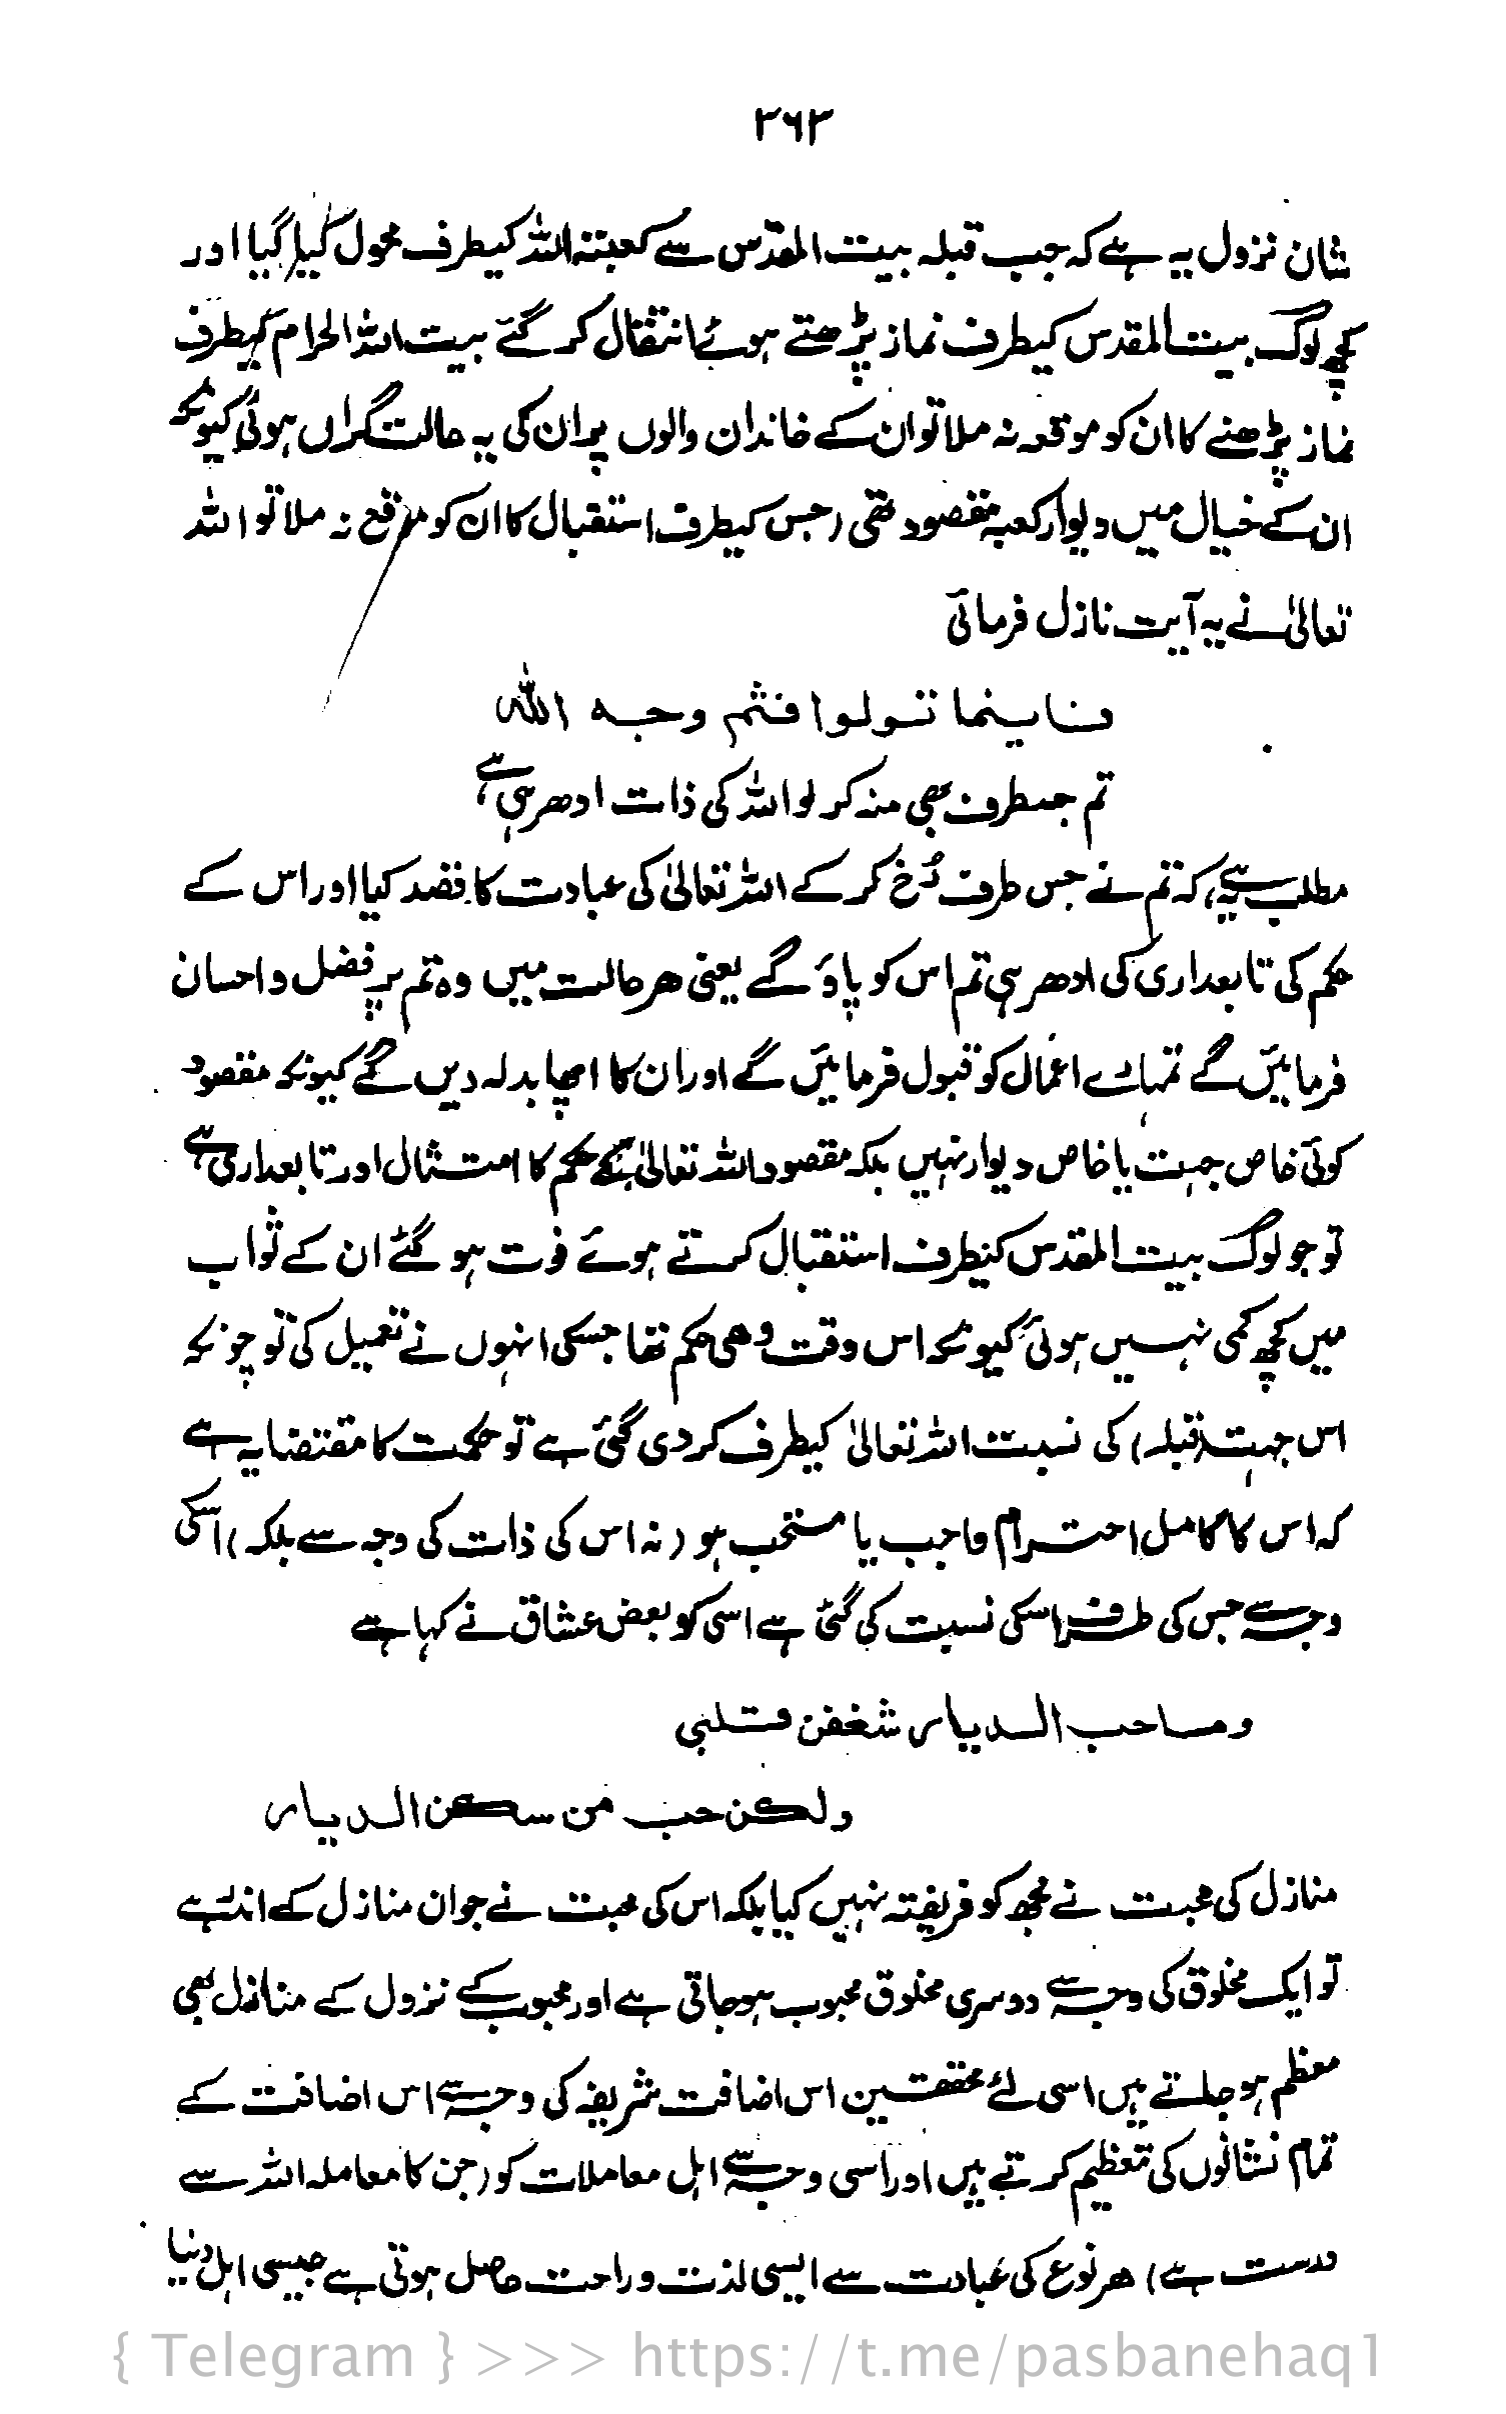 ۳۶۳
شان نزول یہ ہے کہ جب قبلہ بیت المقدس سے کعبتہ اللہ کیطرف محول کیا گیا اور
کچھ لوگ بیت المقدس کیطرف نماز پڑھتے ہوئے انتقال کر گئے بیت اللہ الحرام کیطرف
نماز پڑھنے کا ان کو موقعہ نہ ملا تو ان کے خاندان والوں پر ان کی یہ حالت گراں ہوئی کیونکہ
ان کے خیال میں دیوار کعبہ مقصود تھی (جس کیطرف استقبال کا ان کو موقع نہ ملا تو اللہ
تعالیٰ نے یہ آیت نازل فرمائی
فاینما تولوا فثم وجہ اللہ
تم جسطرف بھی منہ کر لو اللہ کی ذات ادھر ہی ہے
مطلب یہ ہے کہ تم نے جس طرف رُخ کر کے اللہ تعالیٰ کی عبادت کا قصد کیا اور اس کے
حکم کی تابعداری کی ادھر ہی تم اس کو پاؤ گے یعنی ھر حالت میں وہ تم پر فضل و احسان
فرمائیں گے تمہارے اعمال کو قبول فرمائیں گے اور ان کا اچھا بدلہ دیں گے کیونکہ مقصود
کوئی خاص جہت یا خاص دیوار نہیں بلکہ مقصود اللہ تعالیٰ کے حکم کا امتثال اور تابعداری ہے
تو جو لوگ بیت المقدس کیطرف استقبال کرتے ہوئے فوت ہو گئے ان کے ثواب
میں کچھ کمی نہیں ہوئی کیونکہ اس وقت وھی حکم تھا جسکی انہوں نے تعمیل کی تو چونکہ
اس جہت (قبلہ) کی نسبت اللہ تعالیٰ کیطرف کر دی گئی ہے تو حکمت کا مقتضا یہ ہے
کہ اس کا کامل احترام واجب یا مستحب ہو (نہ اس کی ذات کی وجہ سے بلکہ) اسکی
وجہ سے جس کی طرف اسکی نسبت کی گئی ہے اسی کو بعض عشاق نے کہا ہے
وماحب الدیار شغفن قلبی
ولکن حب من سکن الدیار
منازل کی محبت نے مجھ کو فریفتہ نہیں کیا بلکہ اس کی محبت نے جو ان منازل کے اندر ہے
تو ایک مخلوق کی وجہ سے دوسری مخلوق محبوب ہو جاتی ہے اور محبوب کے نزول کے منازل بھی
معظم ہو جاتے ہیں اسی لئے محققین اس اضافت شریفہ کی وجہ سے اس اضافت کے
تمام نشانوں کی تعظیم کرتے ہیں اور اسی وجہ سے اہل معاملات کو (جن کا معاملہ اللہ سے
درست ہے) ھر نوع کی عبادت سے ایسی لذت و راحت حاصل ہوتی ہے جیسی اہل دنیا
{ Telegram } >>> https://t.me/pasbanehaq1